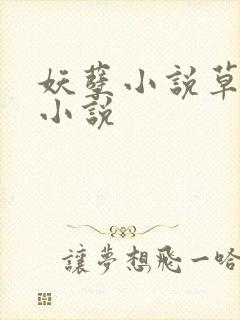 妖孽小説草
小説
讓夢想飛一哈